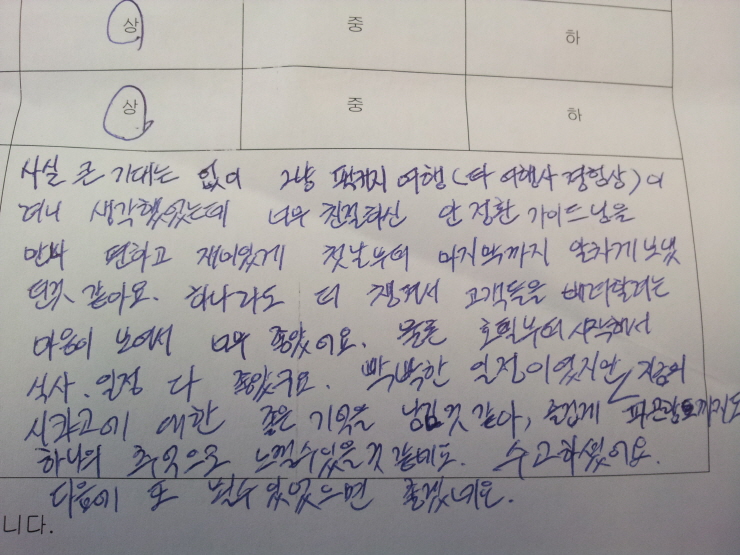 상 중 하
상 중 하
사실 큰 기대는 없이 그냥 패키지 여행(타 여행사 경험상)이
려니 생각했었는데 너무 친절하신 안정환 가이드님을
만나 편하고 재미있게 첫날부터 마지막까지 알차게 보냈
던것 같아요. 하나라도 더 챙겨서 고객들을 배려할려는
마음이 보여서 너무 좋았어요. 물론 호텔부터 시작해서
식사, 일정 다 좋았구요. 빡빡한 일정이었지만 지금의
에 대한 좋은 기억을 남길것 같아, 즐겁게
하나의 추억으로 느낄수있을것 같네요. 수고하셨어요.
다음에 또 뵐수 있었으면 좋겠네요.
니다.